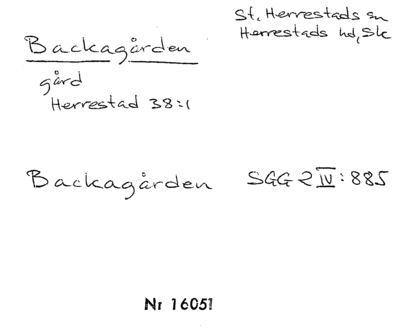 St. Herrestads sn
Herrestads hd, Sk
Backagården
gård
Herrestad 38:1
Backagården SGG 2 IV: 885
Nr 16051